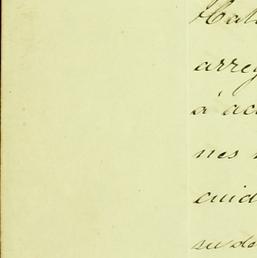 Hat
arreg
á ac
nes
cuid
su do